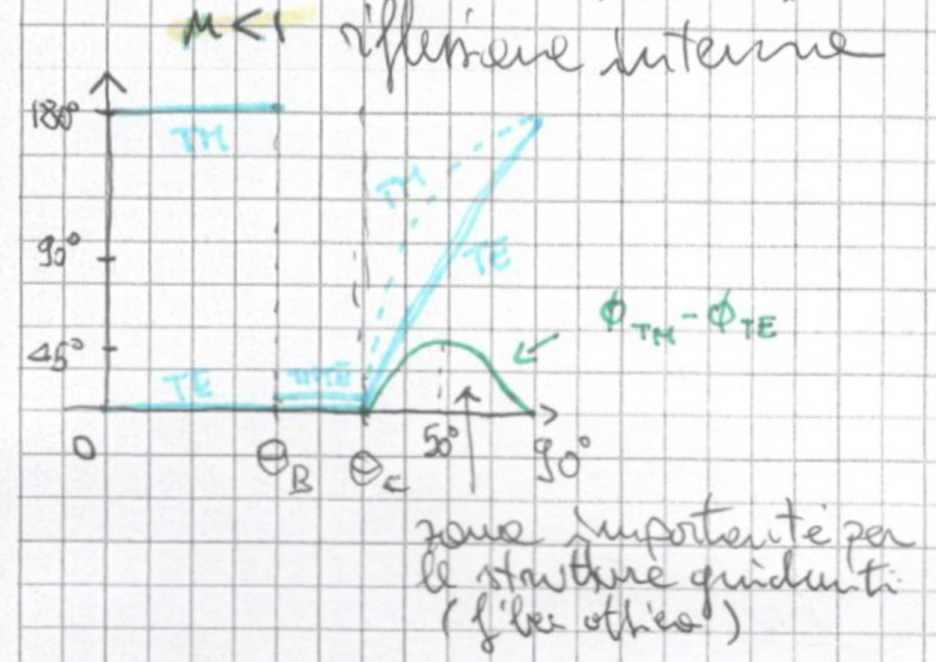 n < 1 riflessione interna
180°
TM
TM
90°
TE
ϕTM - ϕTE
45°
TE
0 θB θc 50° 90°
zona importante per
le strutture guidanti
(fiber ottica)